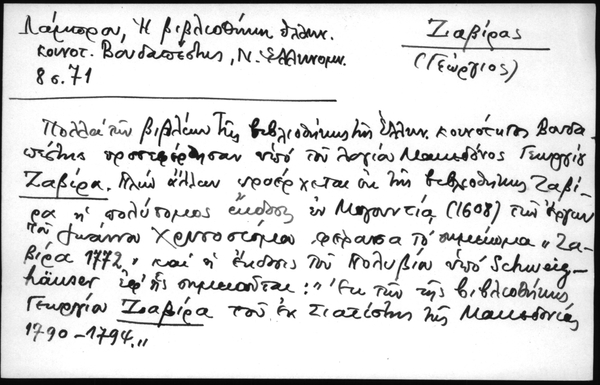 Λάμπρου, Ἡ βιβλιοθήκη ἑλλην.
κοινοτ. Βουδαπέστης, Ν. Ἑλληνομν.
8 σ. 71
Ζαβίρας
(Γεώργιος)
Πολλὰ τῶν βιβλίων τῆς βιβλιοθήκης τῆς ἑλλην. κοινότητος Βουδα-
πέστης προσεφέρθησαν ὑπὸ τοῦ λογίου Μακεδόνος Γεωργίου
Ζαβίρα. Πλὴν ἄλλων προέρχεται ἐκ τῆς βιβλιοθήκης Ζαβί-
ρα ἡ πολύτομος ἔκδοσις ἐν Μογουντίᾳ (1608) τῶν ἔργων
τοῦ Ἰωάννου Χρυσοστόμου φέρουσα τὸ σημείωμα „Ζα-
βίρα 1772„ καὶ ἡ ἔκδοσις τοῦ Πολυβίου ὑπὸ Schweig-
häuser ἐφ' ἧς σημειοῦται: „Ἐκ τῶν τῆς βιβλιοθήκης
Γεωργίου Ζαβίρα τοῦ ἐκ Σιατίστης τῆς Μακεδονίας
1790-1794„